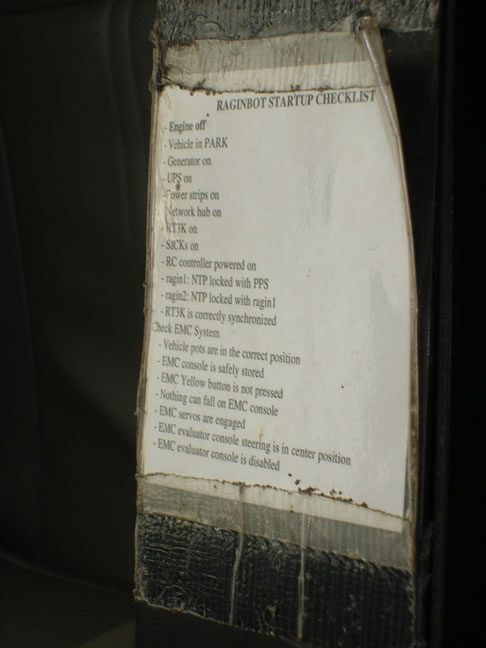 RAGINBOT STARTUP CHECKLIST
- Engine off
- Vehicle in PARK
- Generator on
- UPS on
- Power strips on
- Network hub on
- RT3K on
- SICKs on
- RC controller powered on
- ragin1: NTP locked with PPS
- ragin2: NTP locked with ragin1
- RT3K is correctly synchronized
Check EMC System
- Vehicle pots are in the correct position
- EMC console is safely stored
- EMC Yellow button is not pressed
- Nothing can fall on EMC console
- EMC servos are engaged
- EMC evaluator console steering is in center position
- EMC evaluator console is disabled